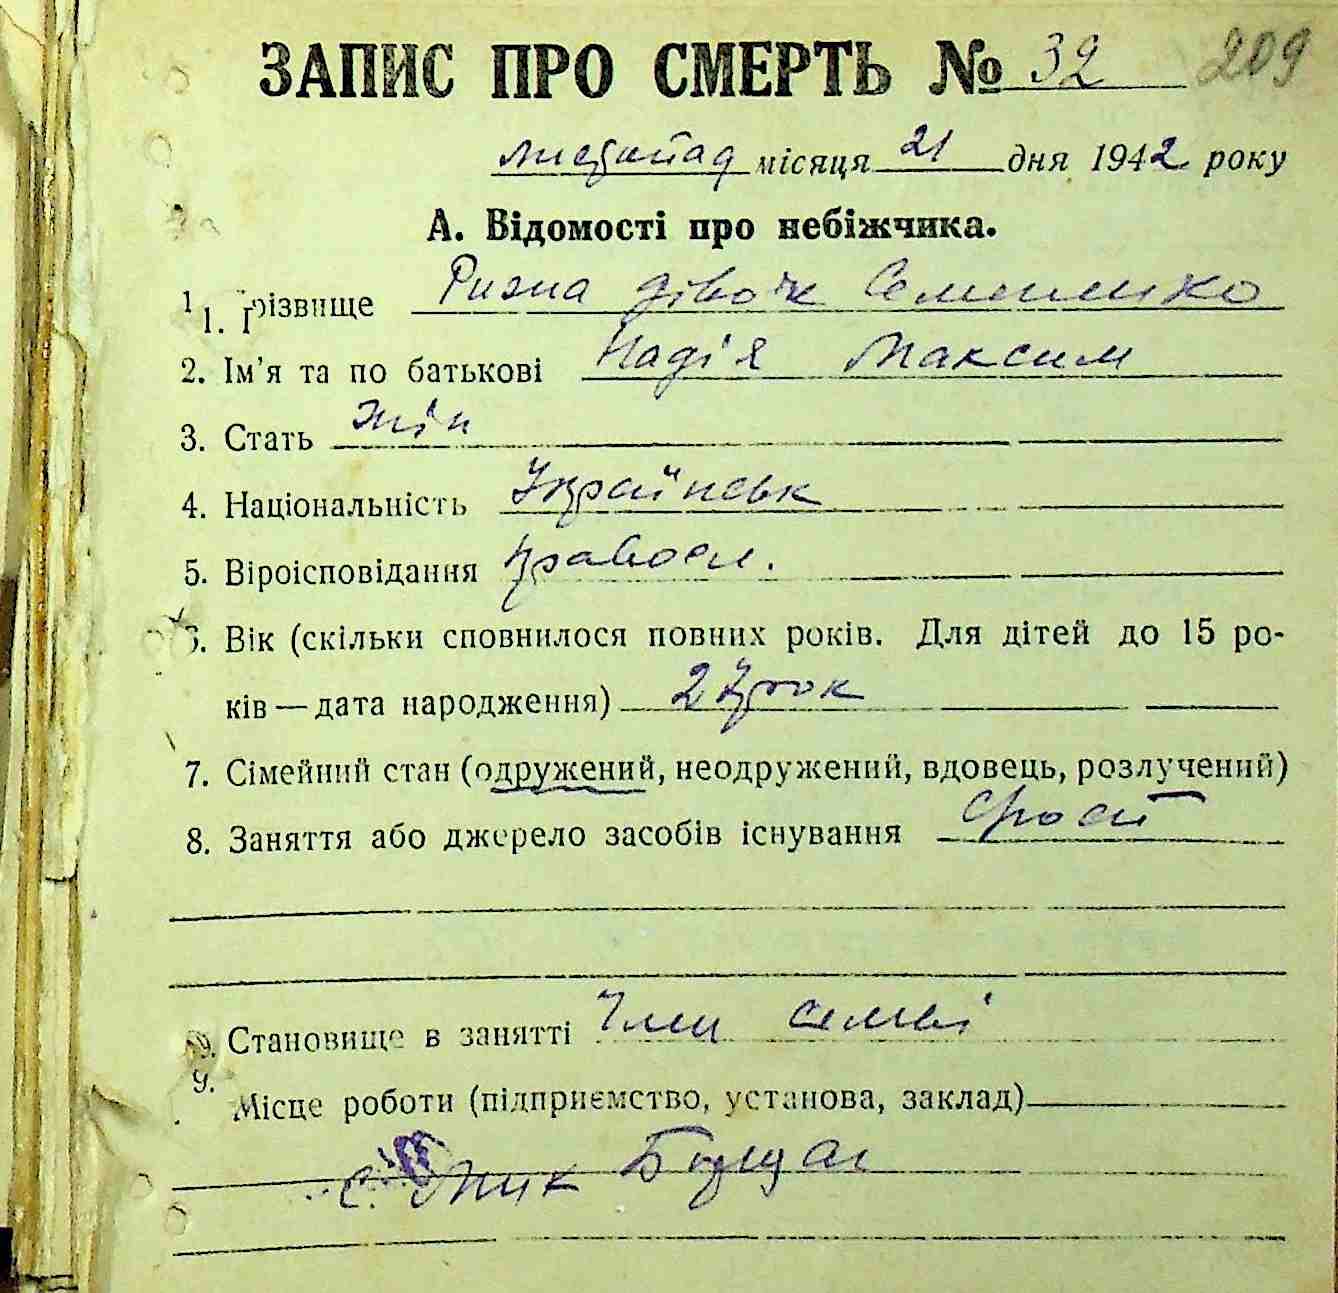 ЗАПИС ПРО СМЕРТЬ № 32 209
листопад місяця 21 дня 1942 року
А. Відомості про небіжчика.
1. Прізвище Ризна дівоч Семененко
2. Ім'я та по батькові Надія Максим
3. Стать жін
4. Національність Українськ
5. Віроісповідання правосл.
6. Вік (скільки сповнилося повних років. Для дітей до 15 ро-
ків—дата народження) 27 рок
7. Сімейний стан (одружений, неодружений, вдовець, розлучений)
8. Заняття або джерело засобів існування
9. Становище в занятті Член семьї
Місце роботи (підприємство, установа, заклад)
с.